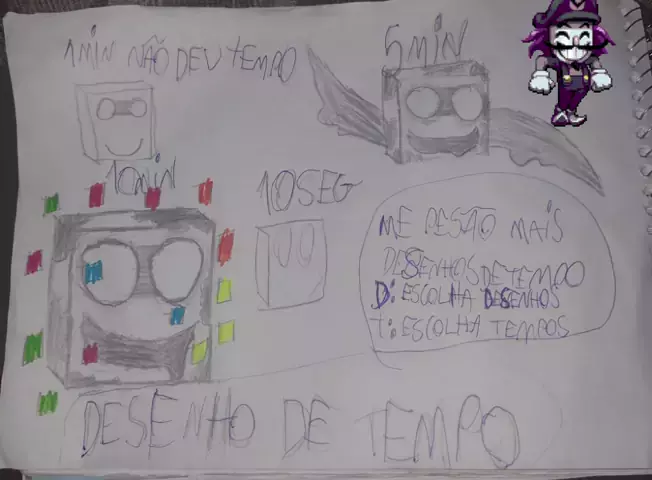 1MIN NÃO DEU TEMPO
5MIN
10MIN
10SEG
ME PESÃO MAIS
DESENHOS DE TEMPO
D: ESCOLHA DESENHOS
T: ESCOLHA TEMPOS
DESENHO DE TEMPO